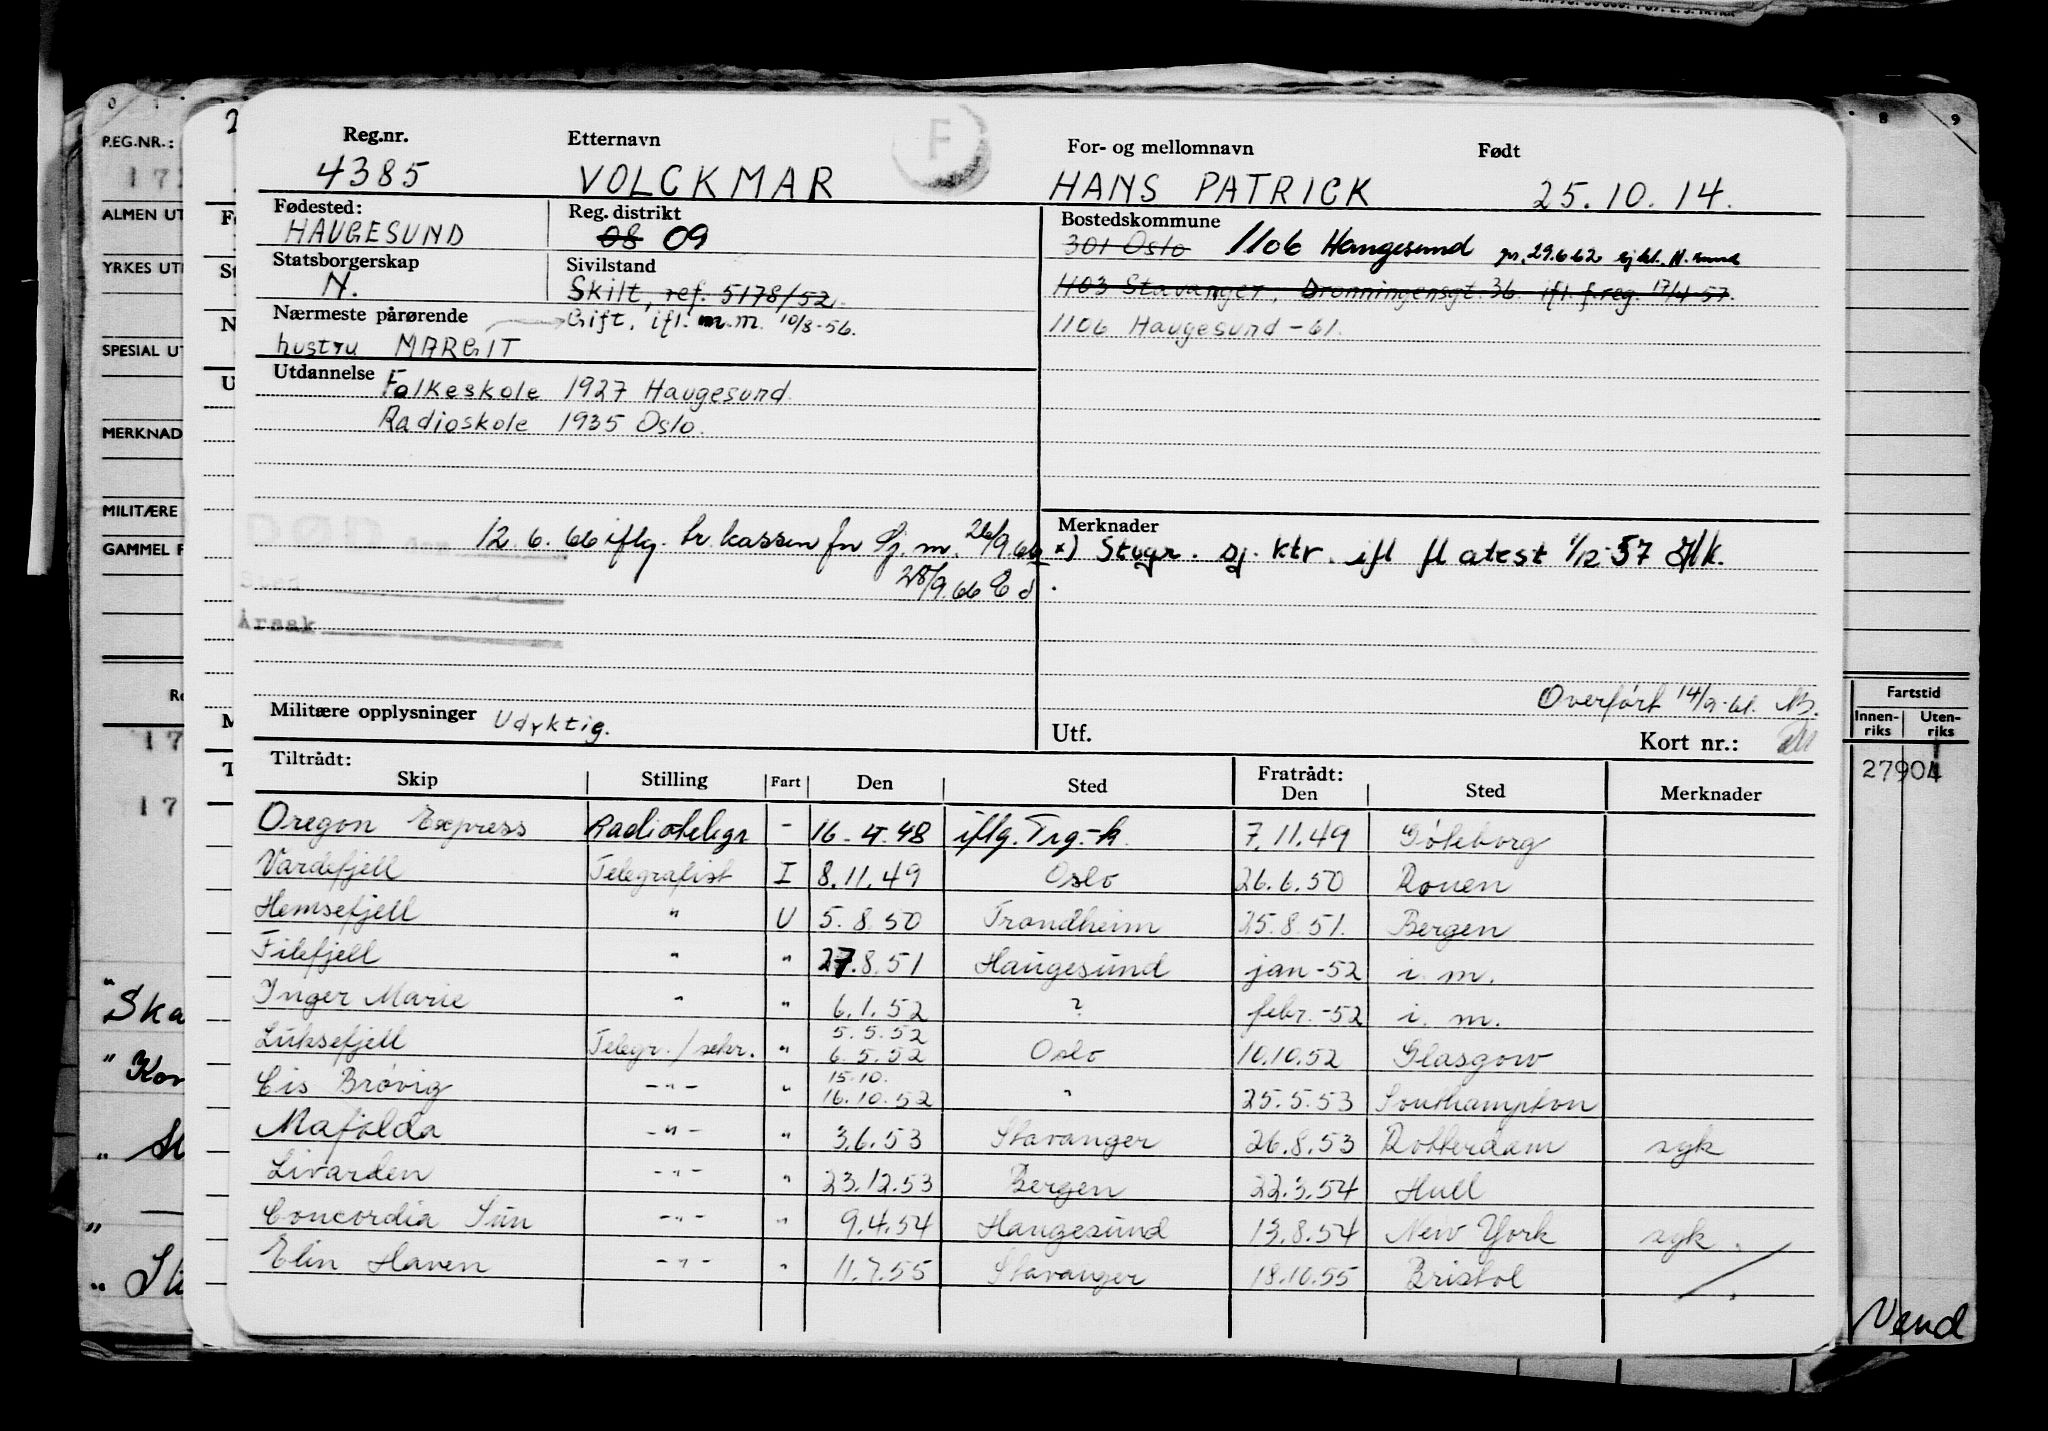 Reg.nr. Etternavn F For- og mellomnavn Født
4385 VOLCKMAR HANS PATRICK 25.10.14.
Fødested: Reg. distrikt Bostedskommune
HAUGESUND 08 09 301 Oslo 1106 Haugesund pr. 29.6.62
Statsborgerskap Sivilstand
N. Skilt, ref. 5178/52. 1103 Stavanger, Dronningensgt. 36. ifl. f.reg. 17/4-57.
Nærmeste pårørende Gift, ifl. m.m. 10/3-56. 1106 Haugesund -61.
hustru MARGIT
Utdannelse Folkeskole 1927 Haugesund.
Radioskole 1935 Oslo.
DØD den 12.6.66 iflg. kassen for Sj.m. 26/9.66
28/9.66
Årsak
Merknader
x) Stvgr. sj. ktr. ifl fl atest 1/12-57
Overført 14/9-61.
Militære opplysninger Udyktig. Utf. Kort nr.:
Tiltrådt: Fratrådt:
Skip Stilling Fart Den Sted Den Sted Merknader
Oregon Express Radiotelegr - 16-4.48 iflg. Trg.-k. 7.11.49 Göteborg
Vardefjell Telegrafist I 8.11.49 Oslo 26.6.50 Rouen
Hemsefjell " U 5.8.50 Trondheim 25.8.51. Bergen
Filefjell " " 27.8.51 Haugesund jan-52 i. m.
Inger Marie " " 6.1.52 ? febr.-52 i. m.
Luksefjell Telegr./sekr. " 5.5.52 6.5.52 Oslo 10.10.52 Glasgow
Cis Brøvig -"- " 15.10. 16.10.52 " 25.5.53 Southampton
Mafalda -"- " 3.6.53 Stavanger 26.8.53 Rotterdam syk
Livarden -"- " 23.12.53 Bergen 22.3.54 Hull
Concordia Sun -"- " 9.4.54 Haugesund 13.8.54 New York syk.
Elin Haven -"- " 11.7.55 Stavanger 18.10.55 Bristol
REG.NR.:
ALMEN UT
YRKES UT
SPESIAL UT
MERKNAD
MILITÆRE
GAMMEL F
"Ska
" Kor
Fartstid
Innen-riks Uten-riks
27904
Vend